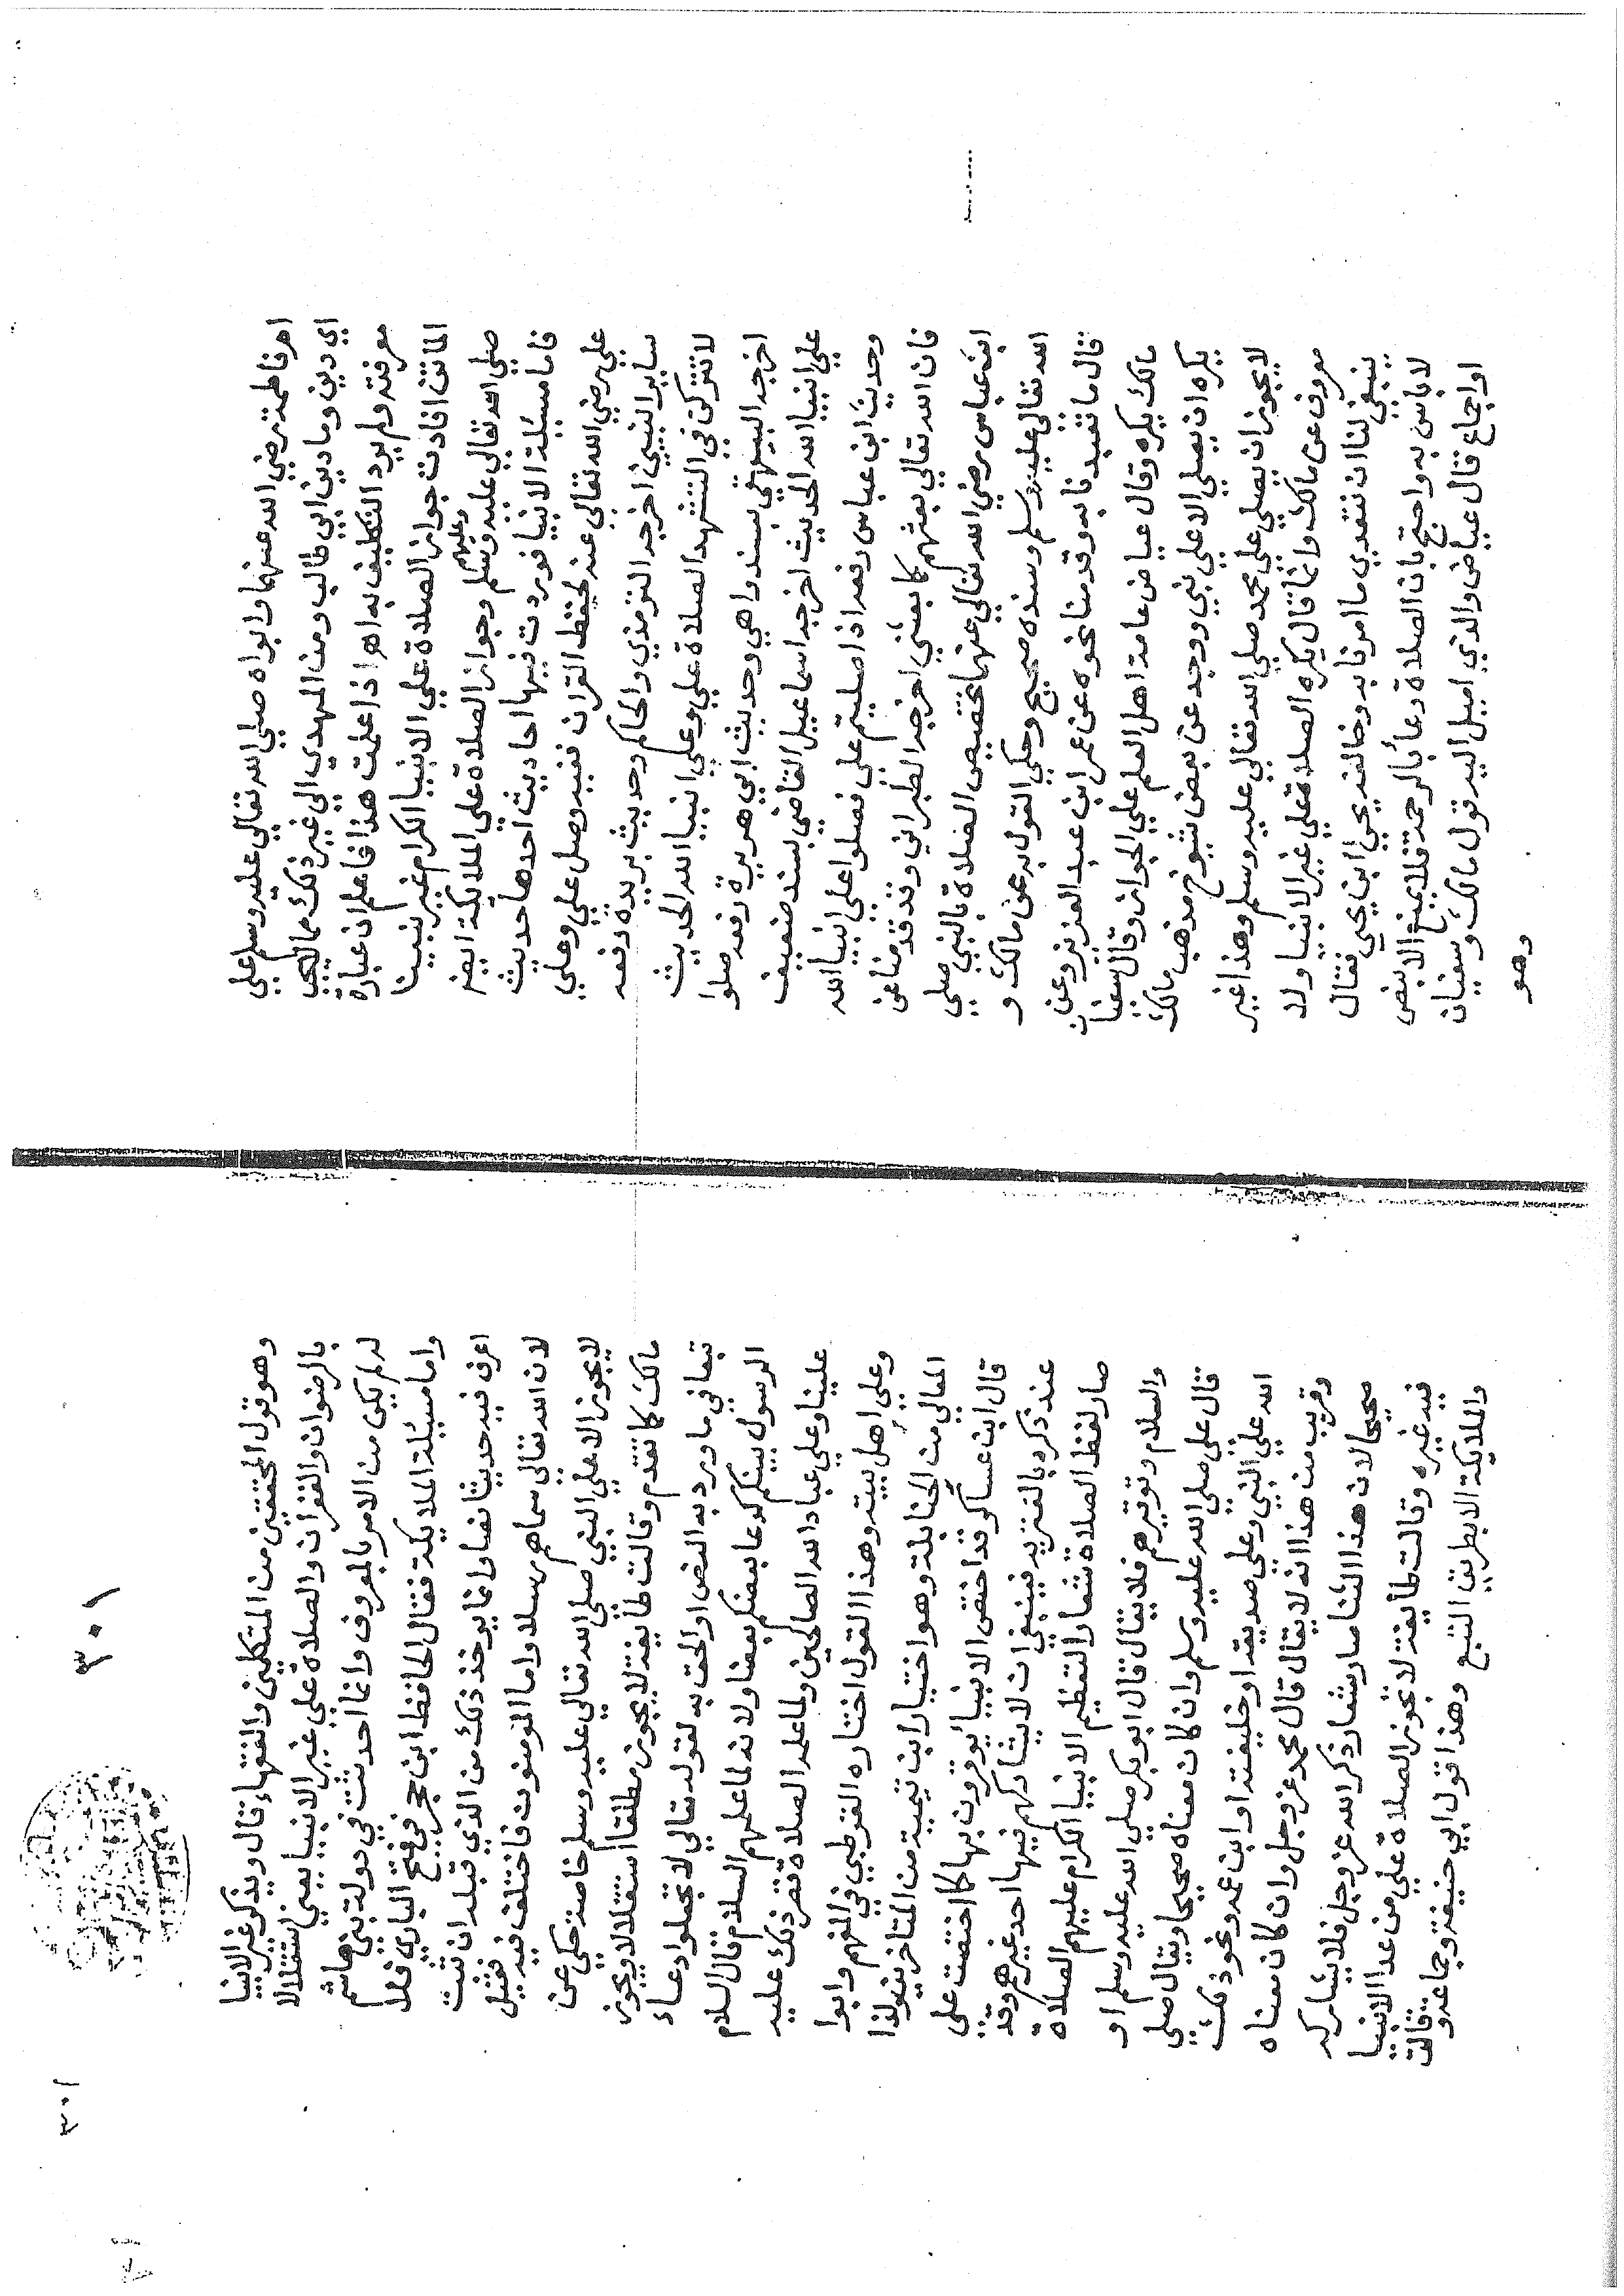 امر فاطمة رضي الله عنهما وابواه صلي الله تعالي عليه وسلم علي
اي دين وما دين ابي طالب ومن المهدي الي غير ذلك مما لا يجب
معرفته ولم يرد التكليف به اهر اذا علمت هذا فاعلم ان عبارة
الماتن افادت جواز الصلاة علي الانبيا الكرام غير نبينا
صلي الله تعالي عليه وعليهم وسلم وجواز الصلاة علي الملايكة ايضا
فاما مسئلة الانبيا فوردت فيها احاديث احدها حديث
علي رضي الله تعالي عنه لحفظ القران ففيه وصل علي وعلي
ساير النبيين اخرجه الترمذي والحاكم وحديث بريدة رفعه
لا تتركن في التشهد الصلاة علي وعلي انبيا الله الحديث
اخرجه البيهقي بسند واهي وحديث ابي هريرة رفعه صلوا
علي انبيا الله الحديث اخرجه اسماعيل القاضي بسند ضعيف
وحديث ابن عباس رفعه اذا صليتم علي فصلوا علي انبيا الله
فان الله تعالي بعثهم كما بعثني اخرجه الطبراني وقد قدمنا عن
ابن عباس رضي الله تعالي عنهما تخصيص الصلاة بالنبي صلي
الله تعالي عليه وسلم وسنده صحيح وحكي القول به عن مالك و
قال ما تعبدنا به وقدمنا نحوه عن عمر ابن عبد العزيز وعن
مالك يكره وقال عياض عامة اهل العلم علي الجواز وقال سفيان
يكره ان يصلي الا علي نبي ووجد عن بعض شيوخ مذهب مالك
لا يجوز ان يصلي علي محمد صلي الله تعالي عليه وسلم وهذا غير
معروف عن مالك وانما قال يكره الصلاة علي غير الانبيا ولا
ينبغي لنا ان نتعدي ما امرنا به وخالفه يحيي ابن يحيي فقال
لا باس به واحتج بان الصلاة دعأ بالرحمة فلا يمنع الا بنص
او اجماع قال عياض والذي اميل اليه قول مالك وسفيان
وهو
٣٠١
٣٠١
وهو قول المحققين من المتكلمين والفقهاء قال ويذكر غير الانبيا
بالرضوان والغفران والصلاة علي غير الانبيا يعني استقلالا
لم يكن من الامر بالمعروف وانما احدثت في دولة بني هاشم
واما مسئلة الملايكة فقال الحافظ ابن حجر في فتح الباري فلا
اعرف فيه حديثا نصا وانما يوخذ ذلك من الذي قبله ان ثبت
لان الله تعالي سماهم رسلا واما المومنون فاختلف فيه فقيل
لا يجوز الا علي النبي صلي الله تعالي عليه وسلم خاصة حكي عن
مالك كما تقدم وقالت طايفة لا يجوز مطلقا استقلالا ويجوز
تبعا في ما ورد به النص او الحق به لقوله تعالي لا تجعلوا دعاء
الرسول بينكم كدعا بعضكم بعضا ولانه لما علمهم السلام قال السلام
علينا وعلي عباد الله الصالحين ولما علمه الصلاة قصر ذلك عليه
وعلي اهل بيته وهذا القول اختاره القرطبي في المفهم وابوا
المعالي من الحنابلة وهو اختيار ابن تيمية من المتاخرين ولذا
قال ابن عساكر قد اختص الانبيا يوقرون بها كما اختصت علي
عند ذكره بالتنزيه فينبغي ان لا يشاركهم فيها احد غيرهم وقد
صار لفظ الصلاة شعارا لتعظيم الانبيا الكرام عليهم الصلاة
والسلام وتوقيرهم فلا يقال قال ابو بكر صلي الله عليه وسلم او
قال علي صلي الله عليه وسلم وان كان معناه صحيحا ويقال صلي
الله علي النبي وعلي صديقه او خليفته او ابن عمه ونحو ذلك
وقريب من هذا انه لا يقال قال محمد عز وجل وان كان معناه
صحيحا لان هذا الثنا صار شعار ذكر الله عز وجل فلا يشاركه
فيه غيره وقالت طايفة لا تجوز الصلاة علي من عدا الانبيا
والملايكة الا بطريق التبع وهذا قول ابي حنيفة وجماعة وقالت